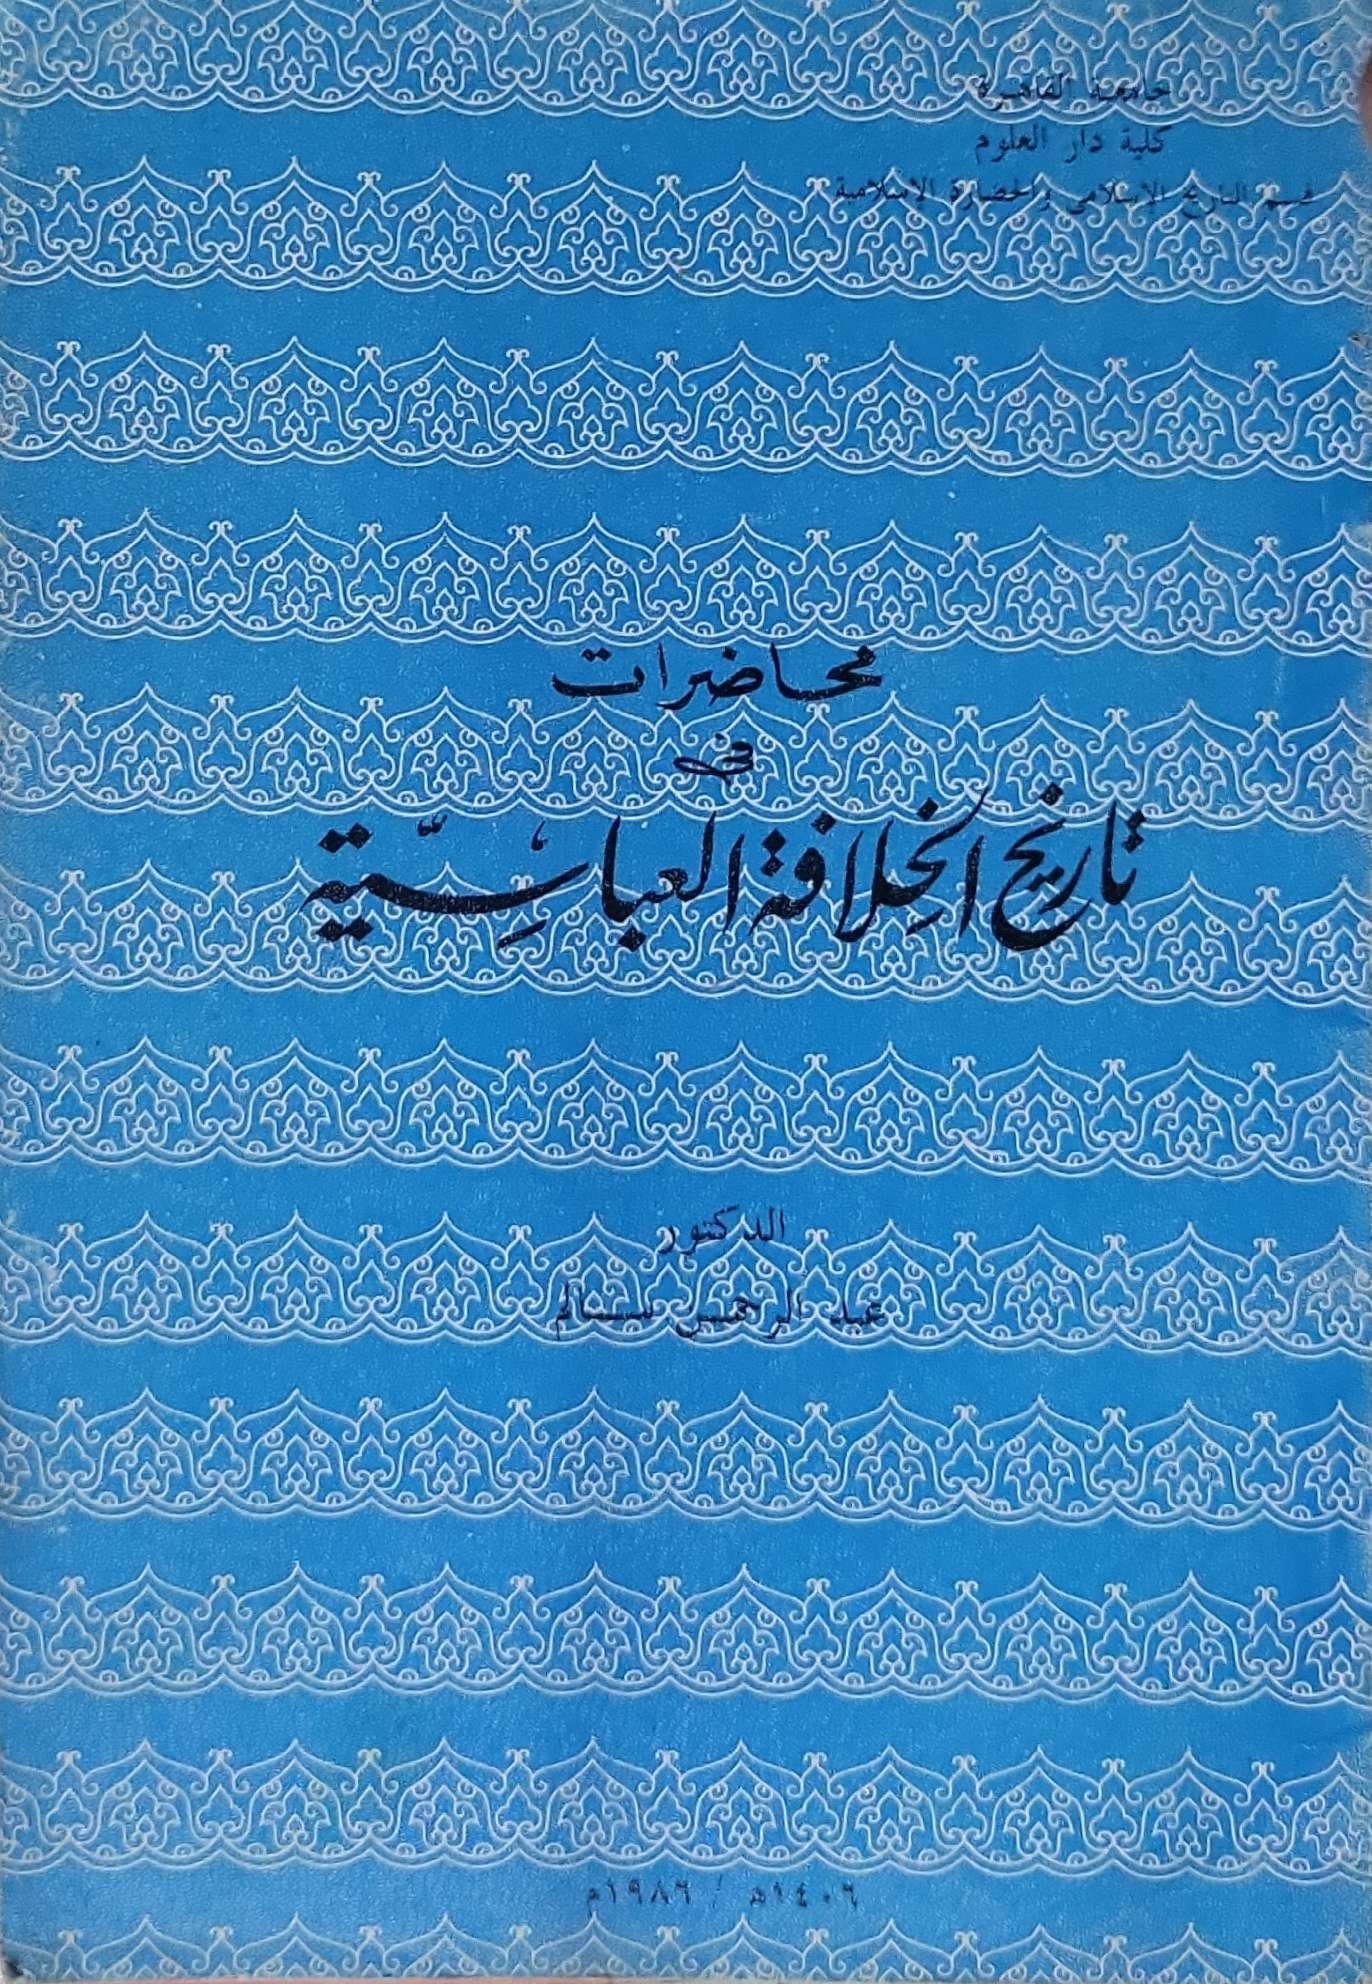 جامعة القاهرة
كلية دار العلوم
قسم التاريخ الإسلامى والحضارة الإسلامية
محاضرات
فى
تاريخ الخلافة العباسيّة
الدكتور
عبد الرحمن سالم
١٤٠٦هـ / ١٩٨٦م